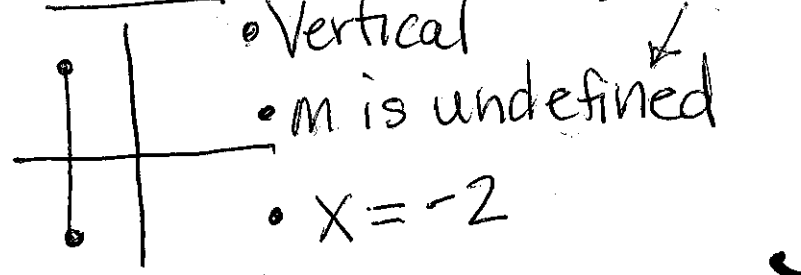 • Vertical
• m is undefined
• x = -2